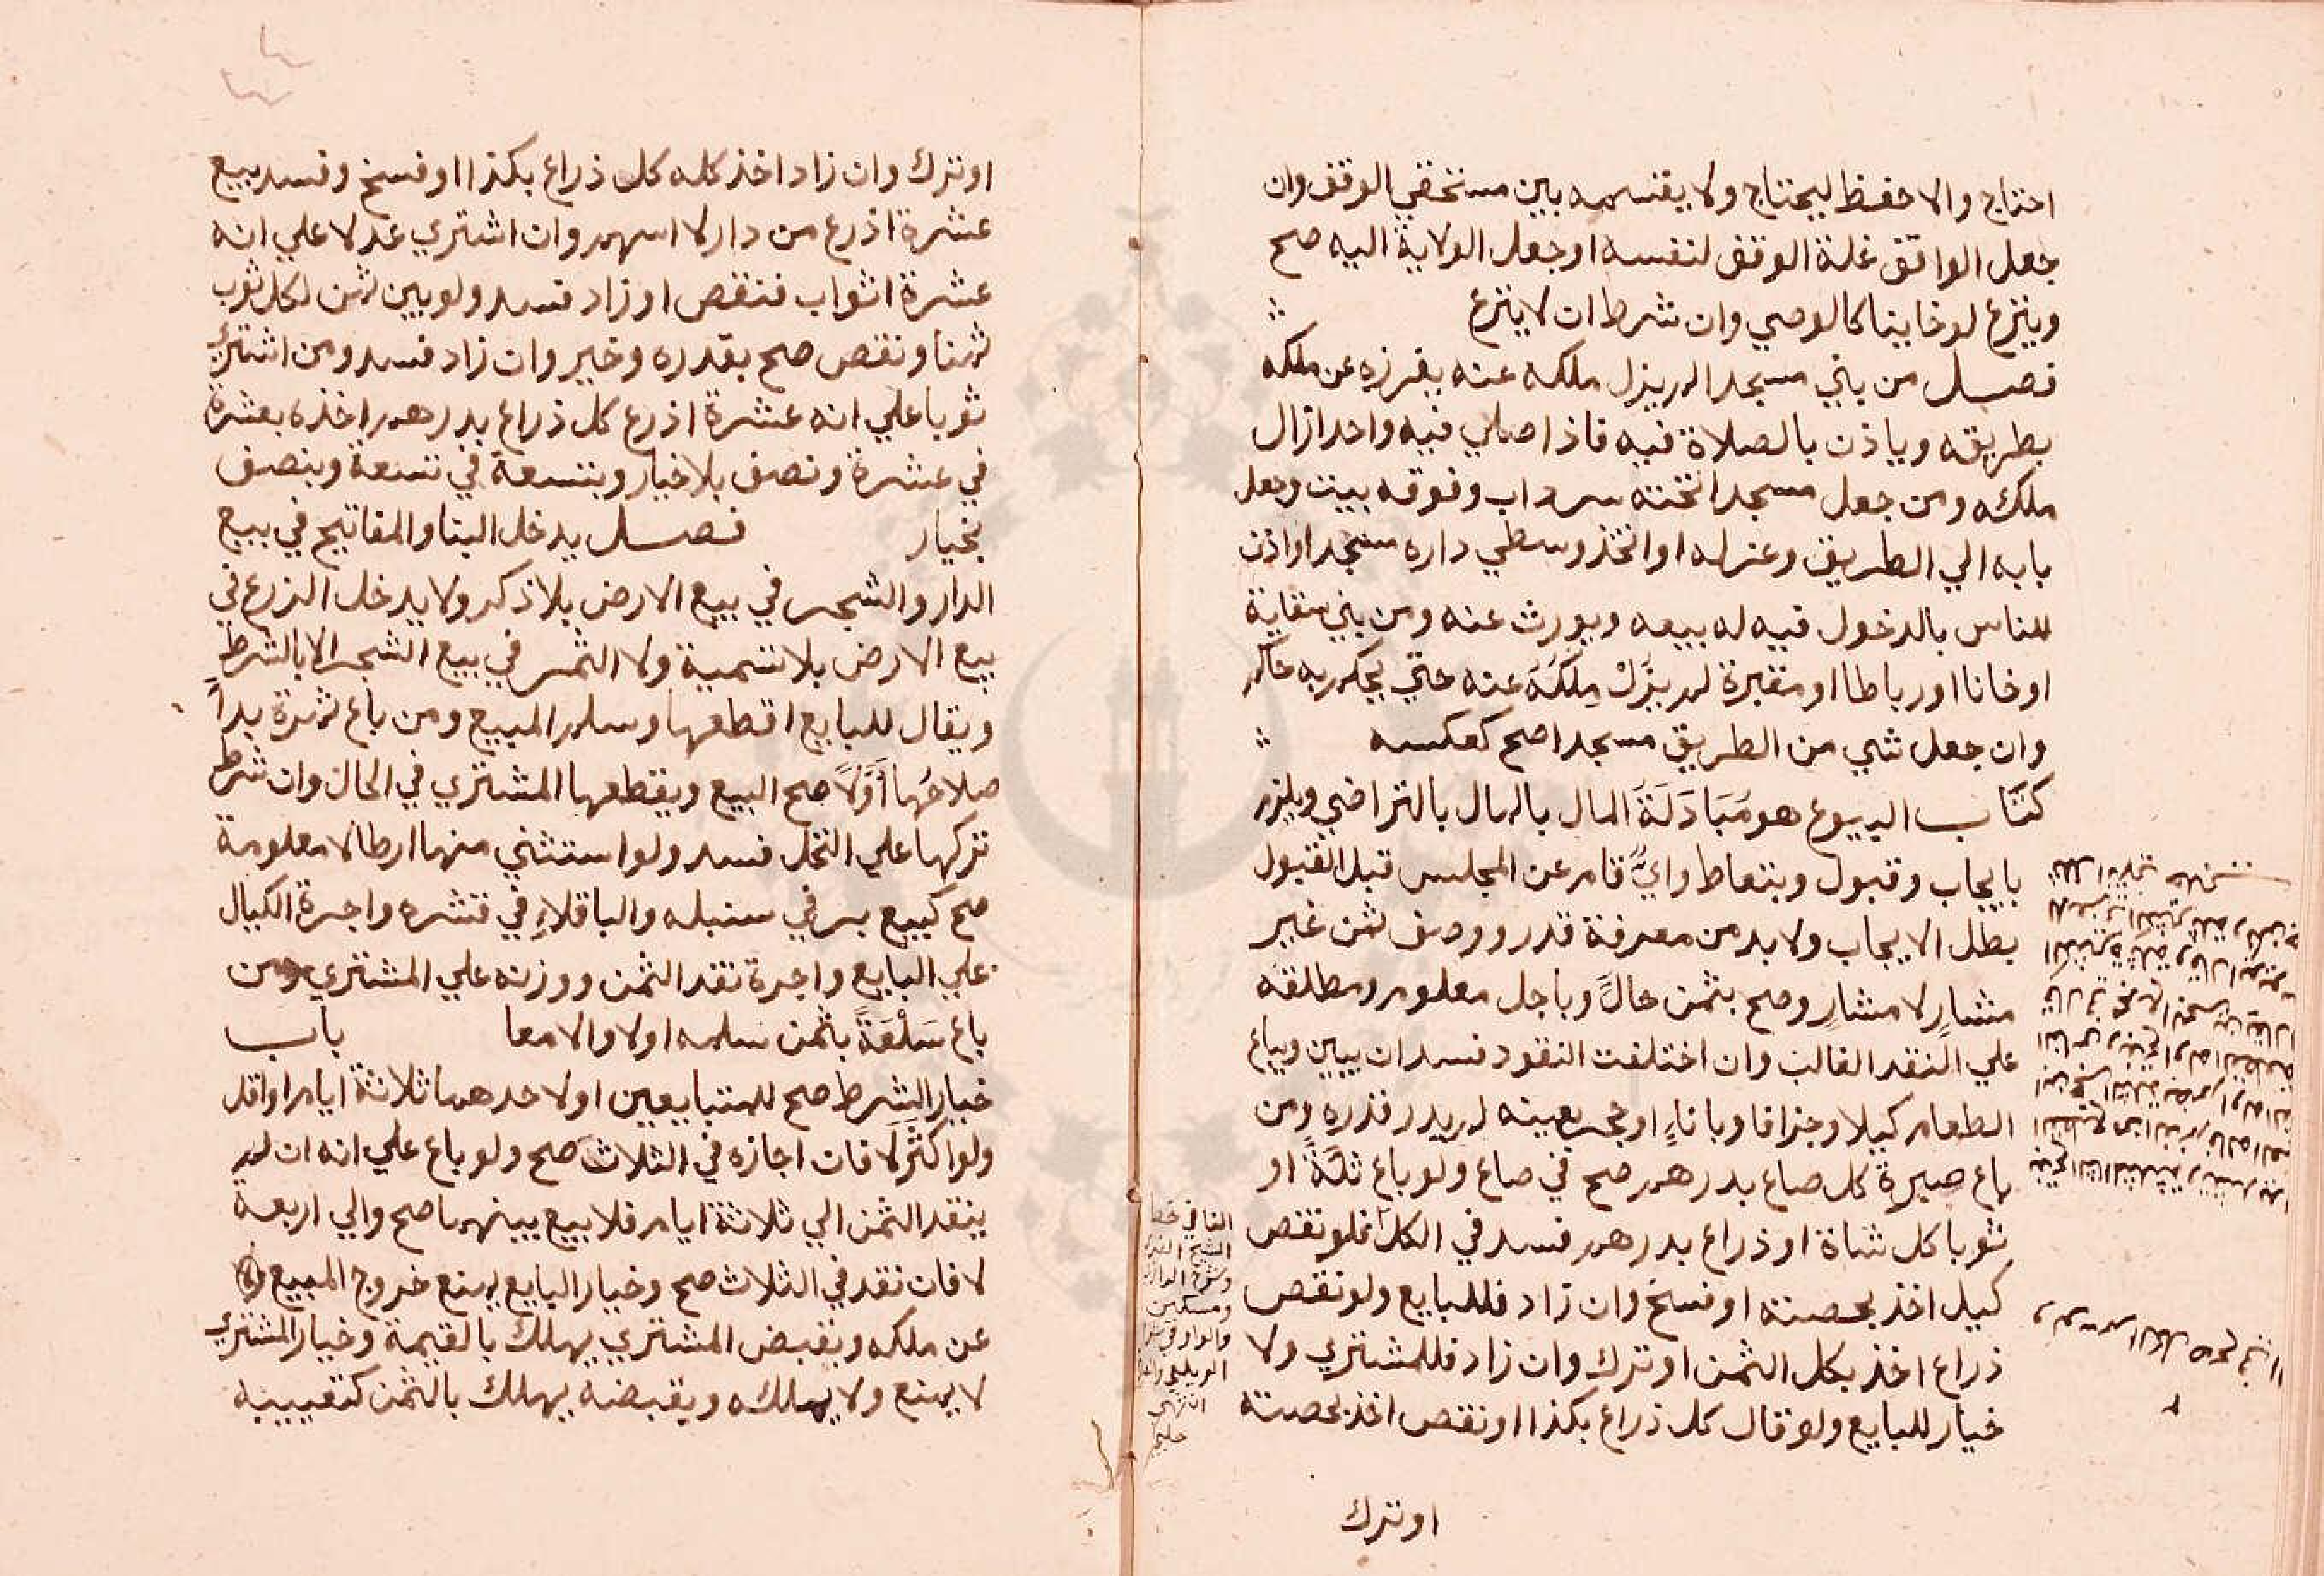 احتاج والا حفظ ليحتاج ولا يقسمه بين مستحقي الوقف وان
جعل الواقف غلة الوقف لنفسه او جعل الولاية اليه صح
وينزع لو خاينا كالوصي وان شرط ان لا ينزع
فصل من بني مسجدا لم يزل ملكه عنه يفرزه عن ملكه
بطريقه وياذن بالصلاة فيه فاذا صلي فيه واحد ازال
ملكه ومن جعل مسجدا تحته سرداب وفوقه بيت وجعل
بابه الي الطريق وعزله او اتخذ وسطي داره مسجدا واذن
للناس بالدخول فيه له بيعه ويورث عنه ومن بني سقاية
او خانا او رباطا او مقبرة لم يزل ملكه عنه حتي يحكم به حاكم
وان جعل شي من الطريق مسجدا صح كعكسه
كتاب البيوع هو مُبَادَلَةُ المال بالمال بالتراضي ويلزم
بايجاب وقبول وبتعاط وايٌّ قام عن المجلس قبل القبول
بطل الايجاب ولا بد من معرفة قدر ووصف ثمن غير
مشارٍ لا مشارٍ وصح بثمن حالٍّ وباجل معلوم ومطلقه
علي النقد الغالب وان اختلفت النقود فسد ان يبين ويباع
الطعام كيلا وجزافا وباناءٍ او حجر بعينه لم يدر قدره ومن
باع صبرة كل صاع بدرهم صح في صاع ولو باع ثلةً او
ثوبا كل شاة او ذراع بدرهم فسد في الكل فلو نقص
كيل اخذ بحصته او فسخ وان زاد فللبايع ولو نقص
ذراع اخذ بكل الثمن او ترك وان زاد فللمشتري ولا
خيار للبايع ولو قال كل ذراع بكذا او نقص اخذ بحصته
او ترك
او ترك وان زاد اخذ كله كل ذراع بكذا او فسخ وفسد بيع
عشرة اذرع من دار لا اسهم وان اشتري عدلا علي انه
عشرة اثواب فنقص او زاد فسد ولو بين ثمن لكل ثوب
ثمنا ونقص صح بقدره وخير وان زاد فسد ومن اشتري
ثوبا علي انه عشرة اذرع كل ذراع بدرهم اخذه بعشرة
في عشرة ونصف بلا خيار وبتسعة في تسعة ونصف
بخيار فصل يدخل البنا والمفاتيح في بيع
الدار والشجر في بيع الارض بلا ذكر ولا يدخل الزرع في
بيع الارض بلا تسمية ولا الثمر في بيع الشجر الا بالشرط
ويقال للبايع اقطعها وسلم المبيع ومن باع ثمرة بدا
صلاحُها أوْلاً صح البيع ويقطعها المشتري في الحال وان شرط
تركها علي النخل فسد ولو استثني منها ارطالا معلومة
صح كبيع بر في سنبله والباقلاءِ في قشره واجرة الكيال
علي البايع واجرة نقد الثمن ووزنه علي المشتري ومن
باع سَلْعَةً بثمن سلمه اولا والا معا باب
خيار الشرط صح للمتبايعين او لاحدهما ثلاثة ايام او اقل
ولو اكثر لا فان اجازه في الثلاث صح ولو باع علي انه ان لم
ينقد الثمن الي ثلاثة ايام فلا بيع بينهما صح والي اربعة
لا فان نقد في الثلاث صح وخيار البايع يمنع خروج المبيع
عن ملكه وبقبض المشتري يهلك بالقيمة وخيار المشتري
لا يمنع ولا يملكه وبقبضه يهلك بالثمن كتعييبه